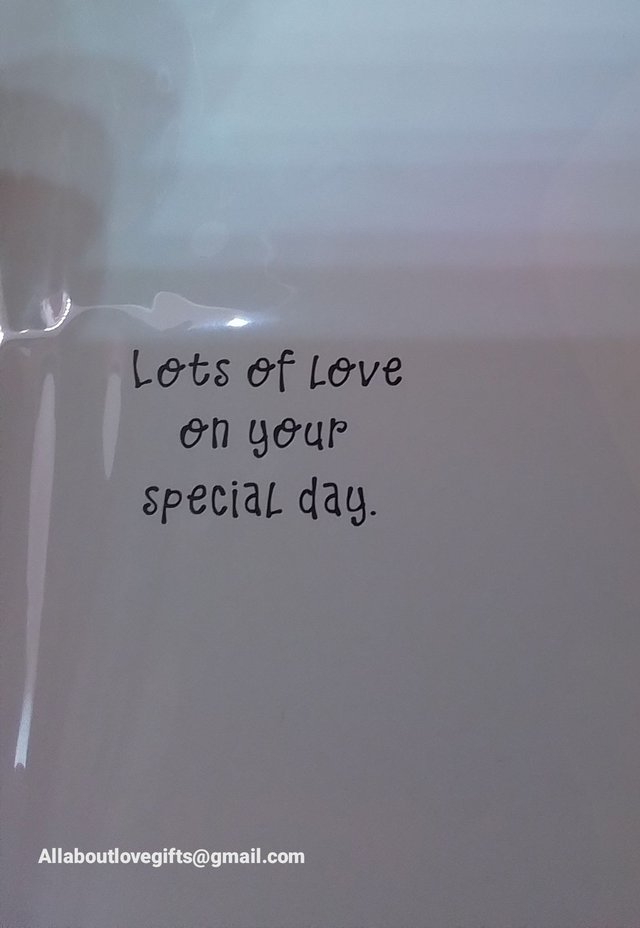 Lots of Love
on your
special day.
Allaboutlovegifts@gmail.com